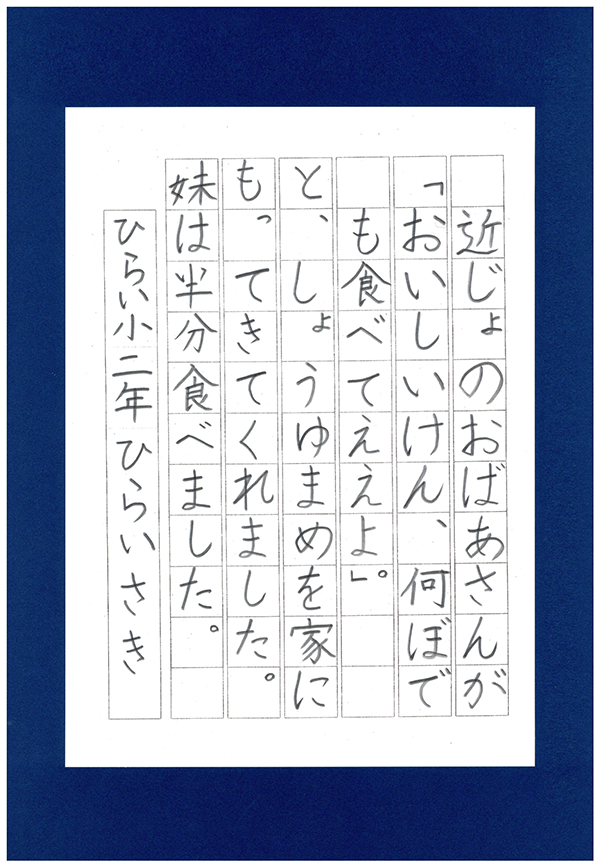 近じょのおばあさんが
「おいしいけん、何ぼで
も食べてええよ。」
と、しょうゆまめを家に
もってきてくれました。
妹は半分食べました。
ひらい小二年ひらいさき